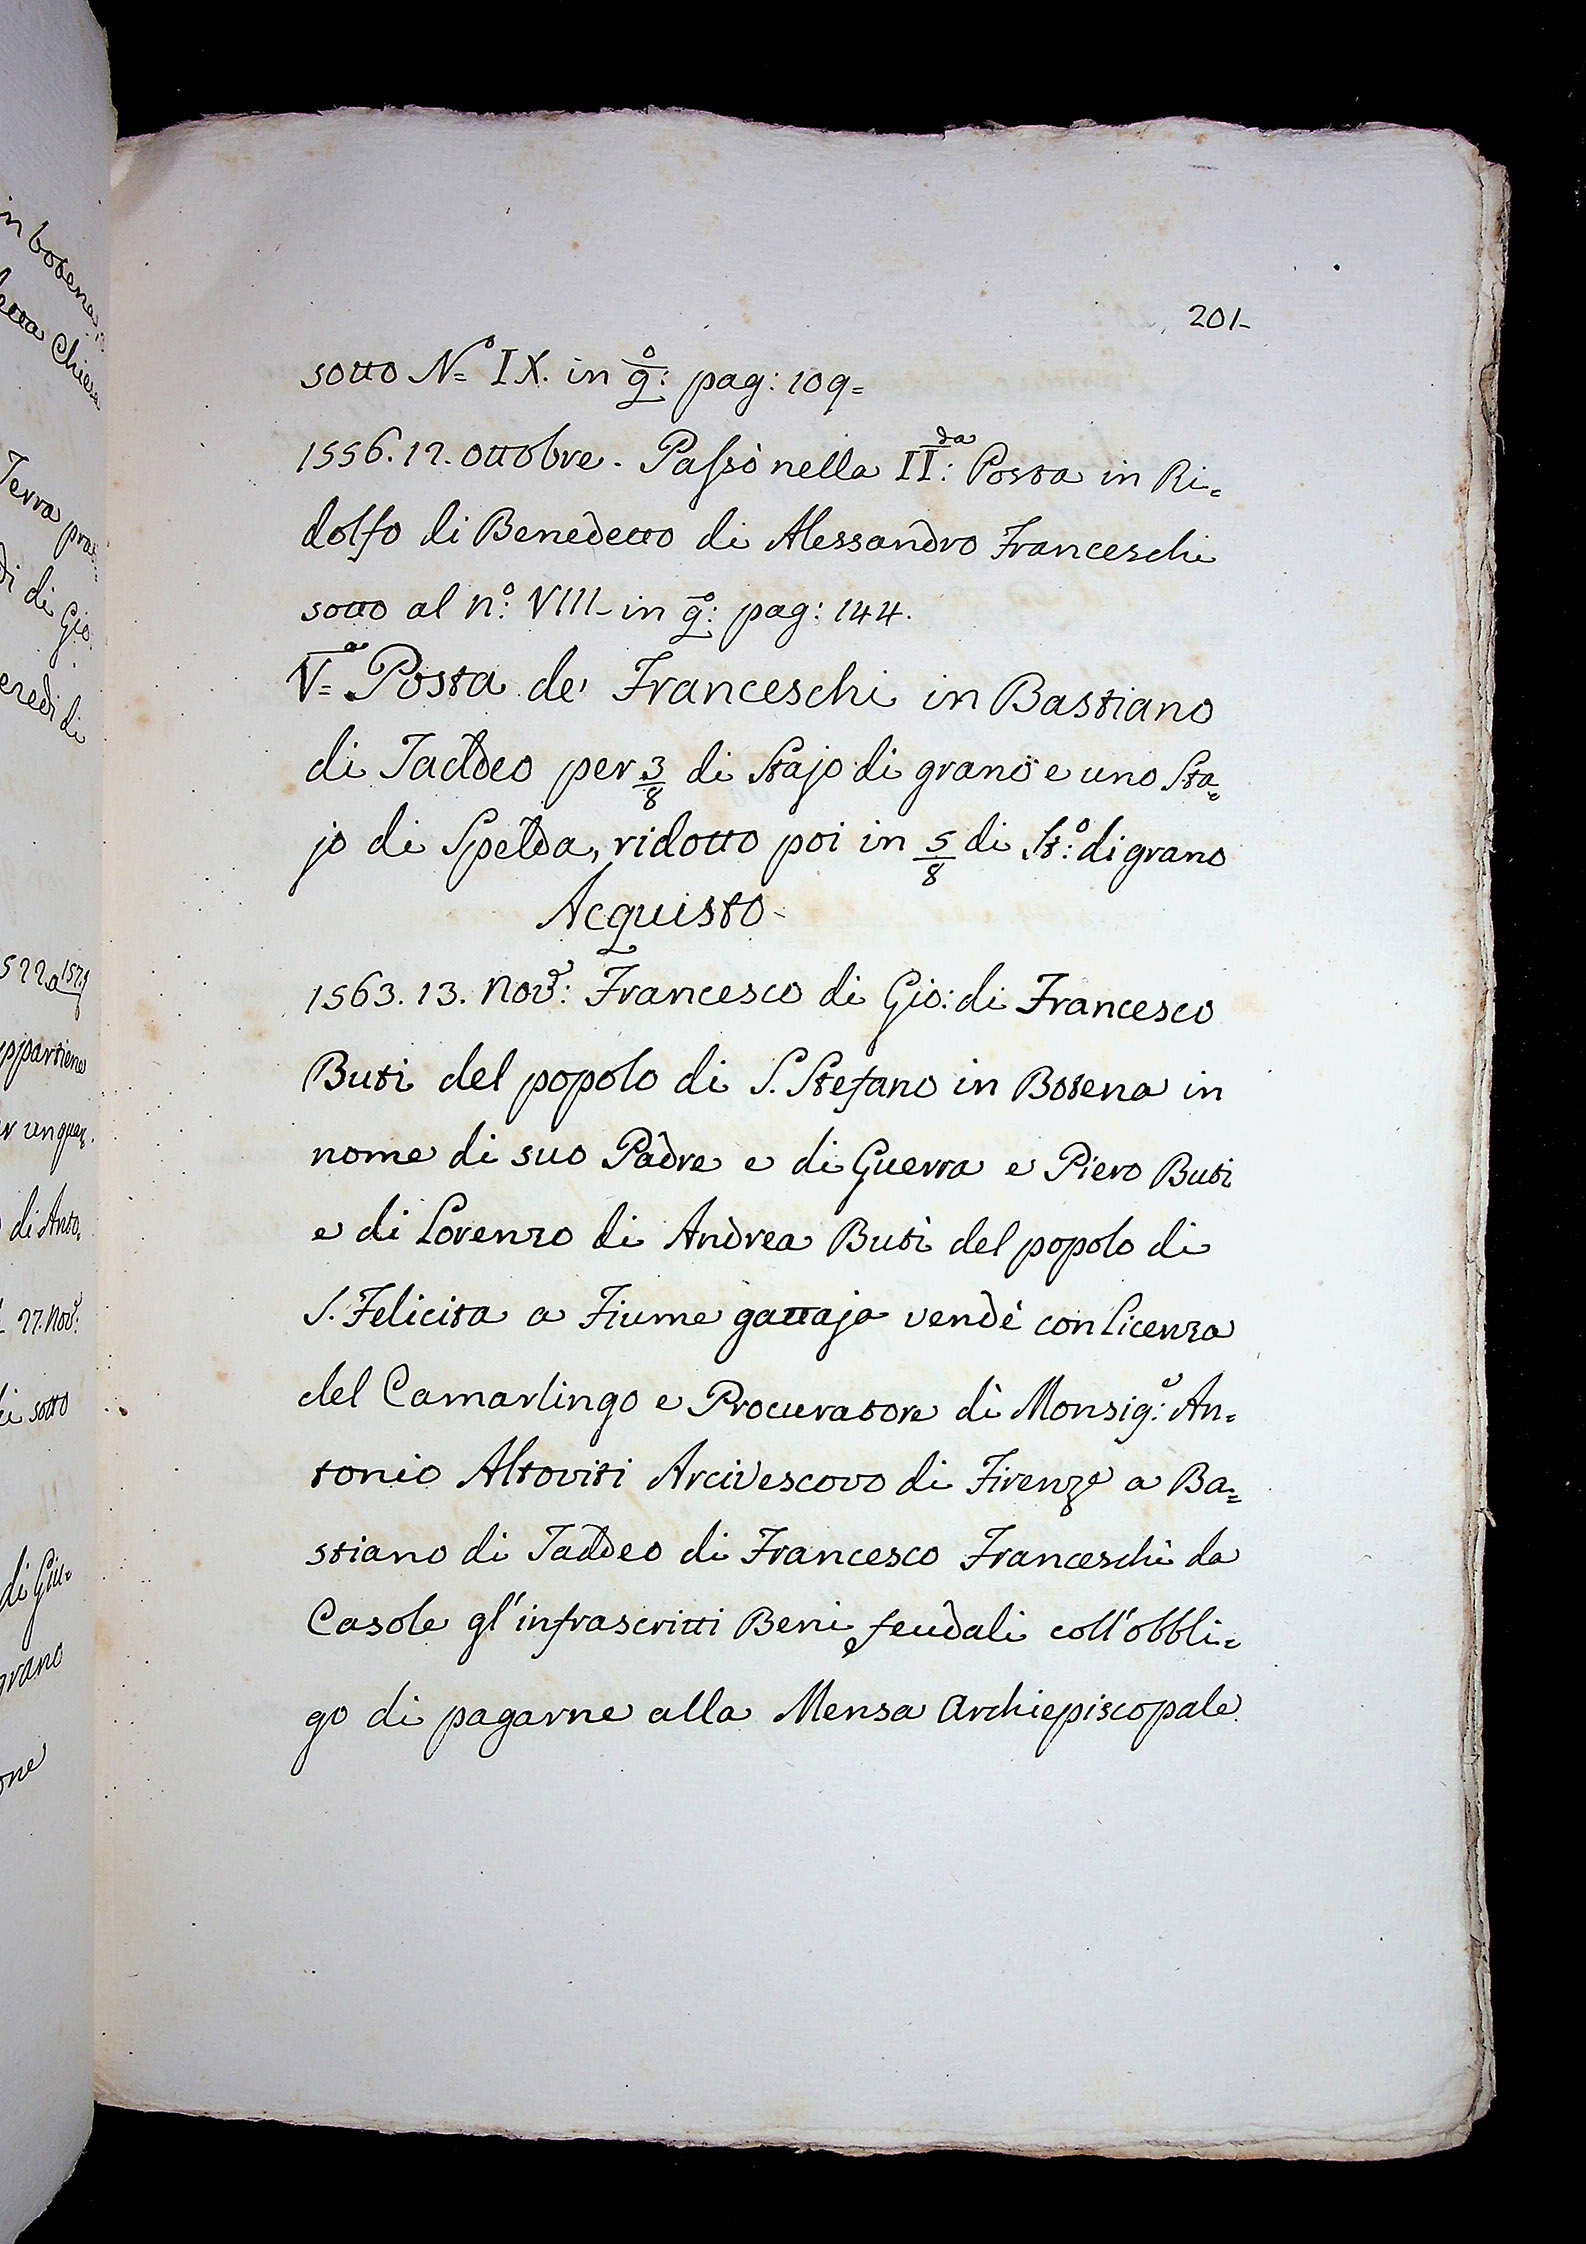 in botena
detta Chiesa
Terra
di di Gio.
eredi di
1522 a 1571
appartiene
di Anto.
27. Nov.e
di sotto
di Giu=
grano
201-
sotto N.o IX. in q.o: pag: 109=
1556. 12. Ottobre. Passò nella II.da: Posta in Ri=
dolfo di Benedetto di Alessandro Franceschi
sotto al n.o: VIII- in q.o: pag: 144.
V.a= Posta de' Franceschi in Bastiano
di Taddeo per 3/8 di Stajo di grano e uno Sta=
jo di Spelda, ridotto poi in 5/8 di St.o: di grano
Acquisto-
1563. 13. Nov.e: Francesco di Gio: di Francesco
Buti del popolo di S. Stefano in Botena in
nome di suo Padre e di Guerra e Piero Buti
e di Lorenzo di Andrea Buti del popolo di
S. Felicita a Fiume gattaja vendè con licenza
del Camarlingo e Procuratore di Monsig.e: An=
tonio Altoviti Arcivescovo di Firenze a Ba=
stiano di Taddeo di Francesco Franceschi da
Casole gl'infrascritti Beni feudali coll'obbli=
go di pagarne alla Mensa Archiepiscopale